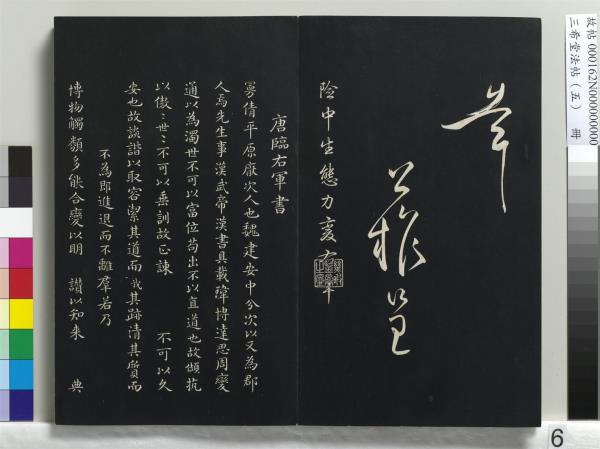 故帖 000162N000000000
三希堂法帖（五） 冊
險中生態力變右軍
唐臨右軍書
曼倩平原厭次人也魏建安中分次以又為郡
人焉先生事漢武帝漢書具載瑋博達思周變
通以為濁世不可以富位苟出不以直道也故傾抗
以傲〻世〻不可以垂訓故正諫 不可以久
安也故談諧以取容潔其道而其跡清其質而
不為耶進退而不離羣若乃
博物觸類多能合變以明 讃以知来 典
6